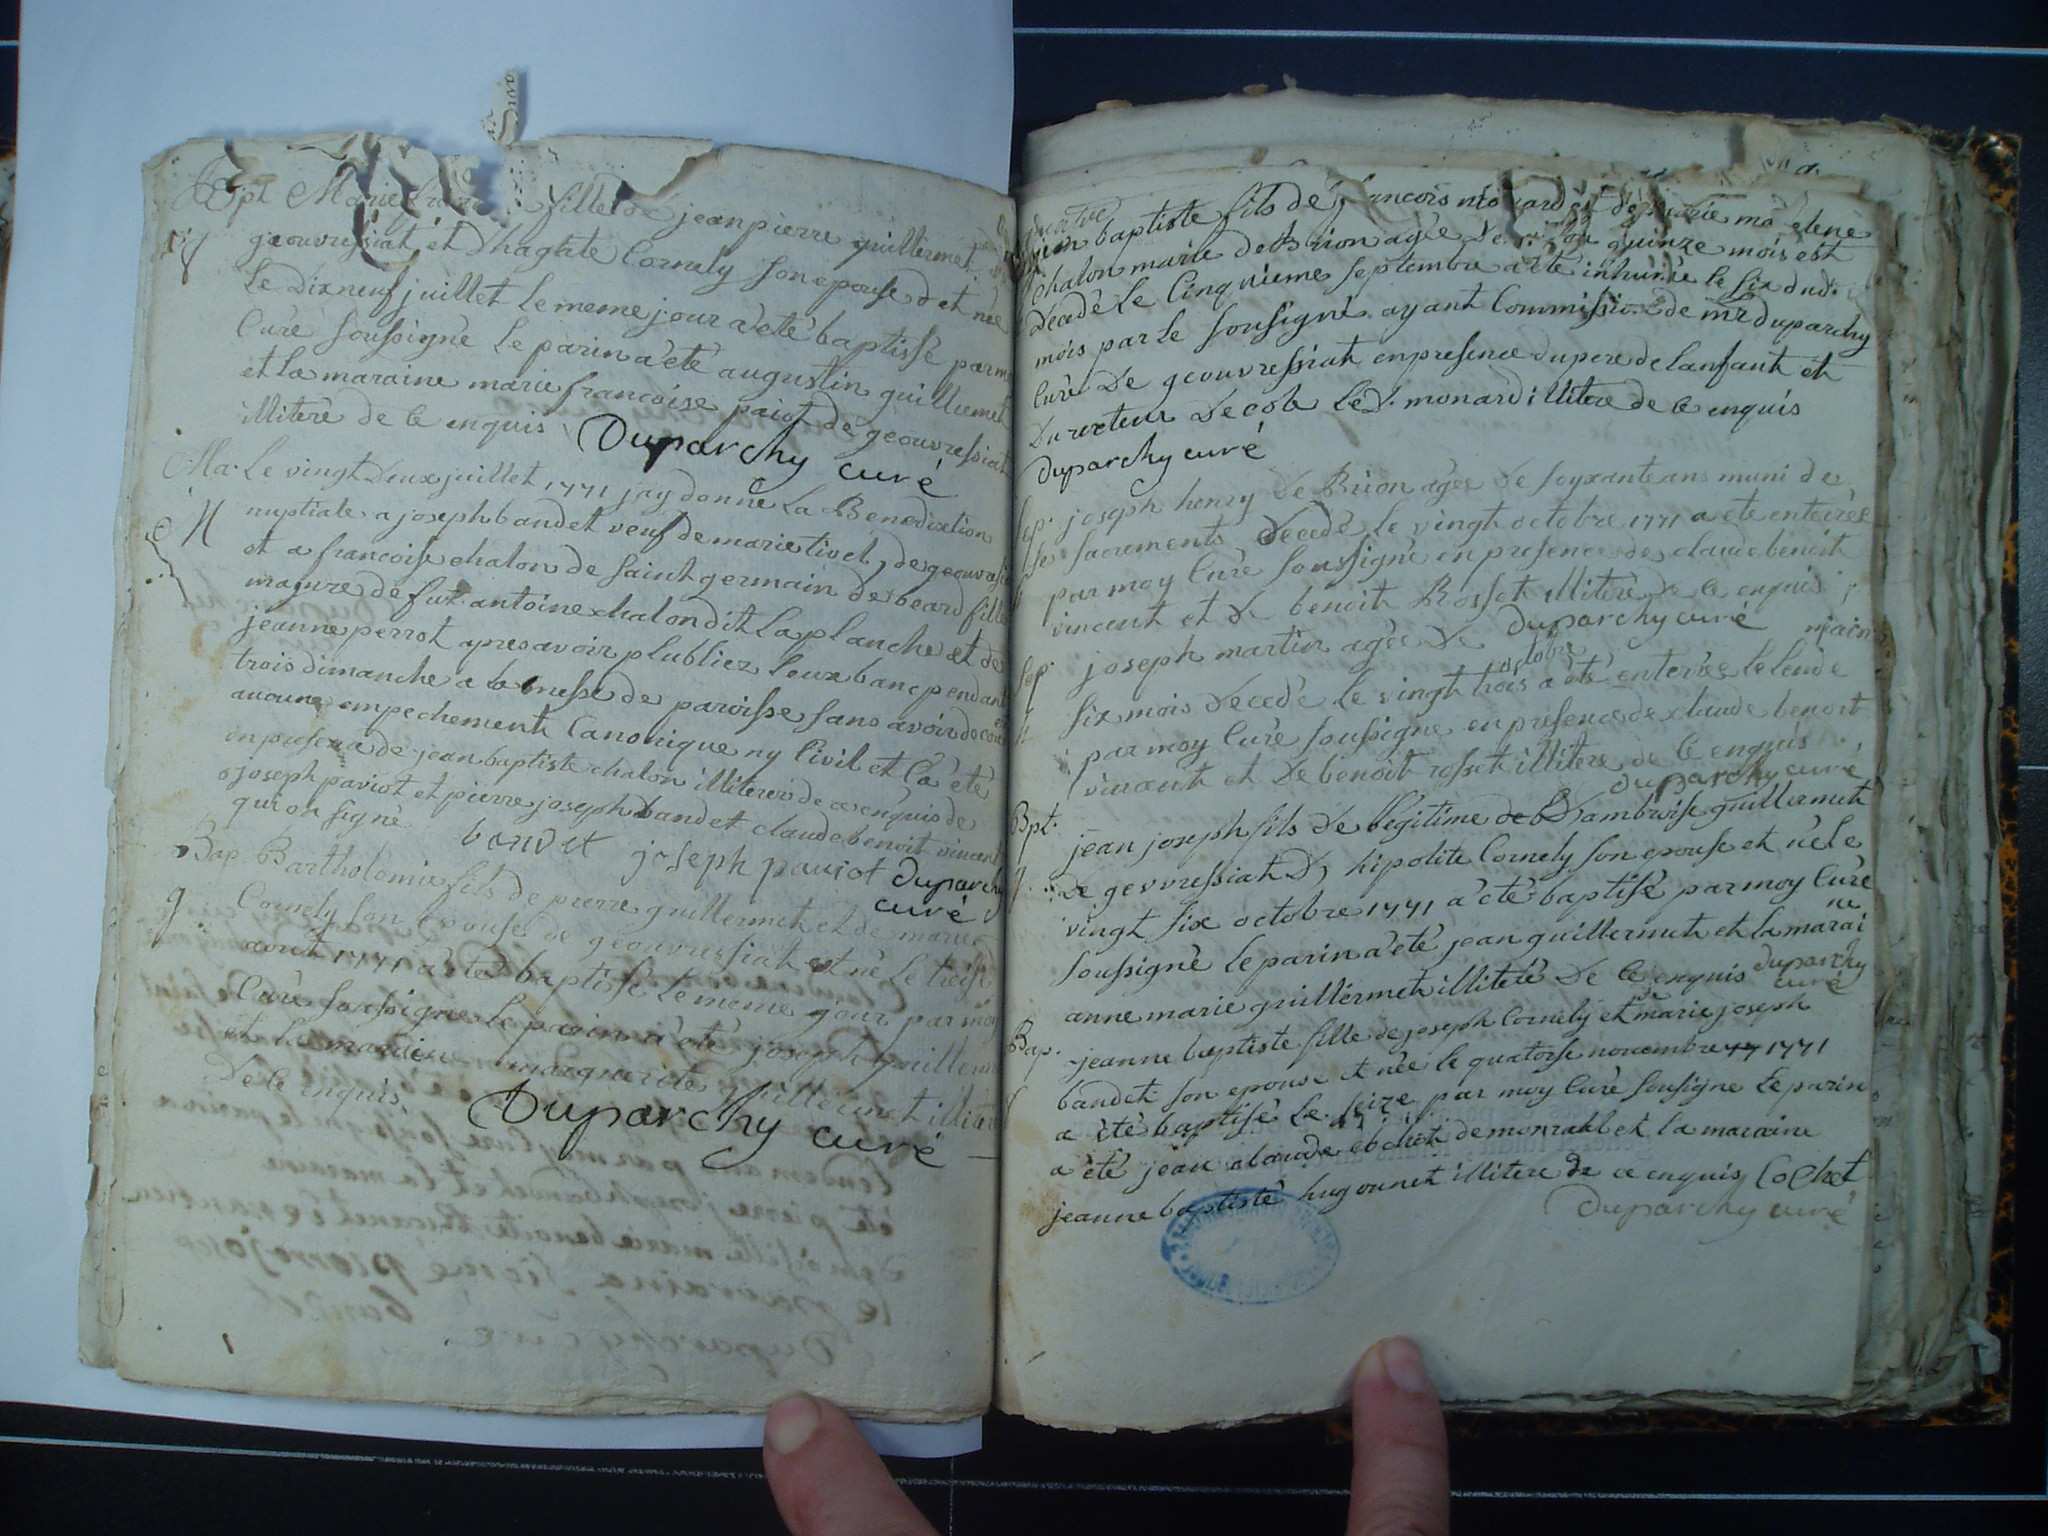 Bpt Marie fille de jean pierre guillermet
geouvressiat et Dhagate Cornely son epouse et née
le dixneuf juillet le meme jour a été baptissé par
Curé soussigné le parin a été augustin guillermet
et la maraine marie francoise paiot de geouvressiat
illiteré de ce enquis Duparchy curé
Ma. Le vingt deux juillet 1771 jay donné la Benediction
nuptiale a joseph bandet veuf de marie tivel, de geouvressia
et a francoise chalon de saint germain de beard fille
majure de fut antoine chalon dit la planche et de
jeanne perrot apres avoir plublier leux banc pendant
trois dimanche a la messe de paroisse sans avoir decou
aucune empechement Canonique ny Civil et la été
en presence de jean baptiste chalon illiterer de ce enquis de
joseph paviot et pierre joseph bandet claude benoit vincent
qui on signé bandet joseph paviot Duparchy
curé
Bap. Bartholomie fils de pierre guillermet et de marie
Cornely son epouse de geouvressiat et né le treise
aout 1771 a été baptissé le meme jour par moy
Curé soussigné le parin a été joseph guillerm
et la maraine marguerite guillermet illiteré
De ce enquis
Duparchy curé
jean baptiste fils de francois monard et de marie
chalon marie de Brion agée de quinze mois est
decedé le Cinquieme septembre a été inhumée le six dud.
mois par le soussigné ayant Commission de mr duparchy
Curé De geouvressiat en presence du pere de lanfant et
Du recteur Decole le d. monard illitere de ce enquis
duparchy curé
Sep. joseph henry de Brion agée de soyxante ans muni de
se sacrements decedé le vingt octobre 1771 a eté enterrée
par moy Curé soussigné en presence de claude benoit
vincent et de benoit Rosset illiteré de ce enquis
duparchy curé
Sep. joseph martin agée de
six mois decedé le vingt trois octobre a été enterrée le lende main
par moy Curé soussigné en presence de claude benoit
vincent et de benoit rosset illitere de ce enquis
duparchy curé
Bpt. jean joseph fils de legitime de Dambroise guillermet
de gevvressiat D, hipolite Cornely son epouse et né le
vingt six octobre 1771 a été baptisé par moy Curé
soussigné le parin a été jean guillermet et la marai ne
anne marie guillermet illiteré De ce enquis duparchy
curé
Bap. jeanne baptiste fille de joseph Cornely et marie joseph
bandet son epouse et née le quatorse novembre 1771
a été baptisé le seize par moy Curé sousigné le parin
a été jean claude cochet de monreal et la maraine
jeanne baptiste hugounet illitere de ce enquis Cochet
Duparchy curé